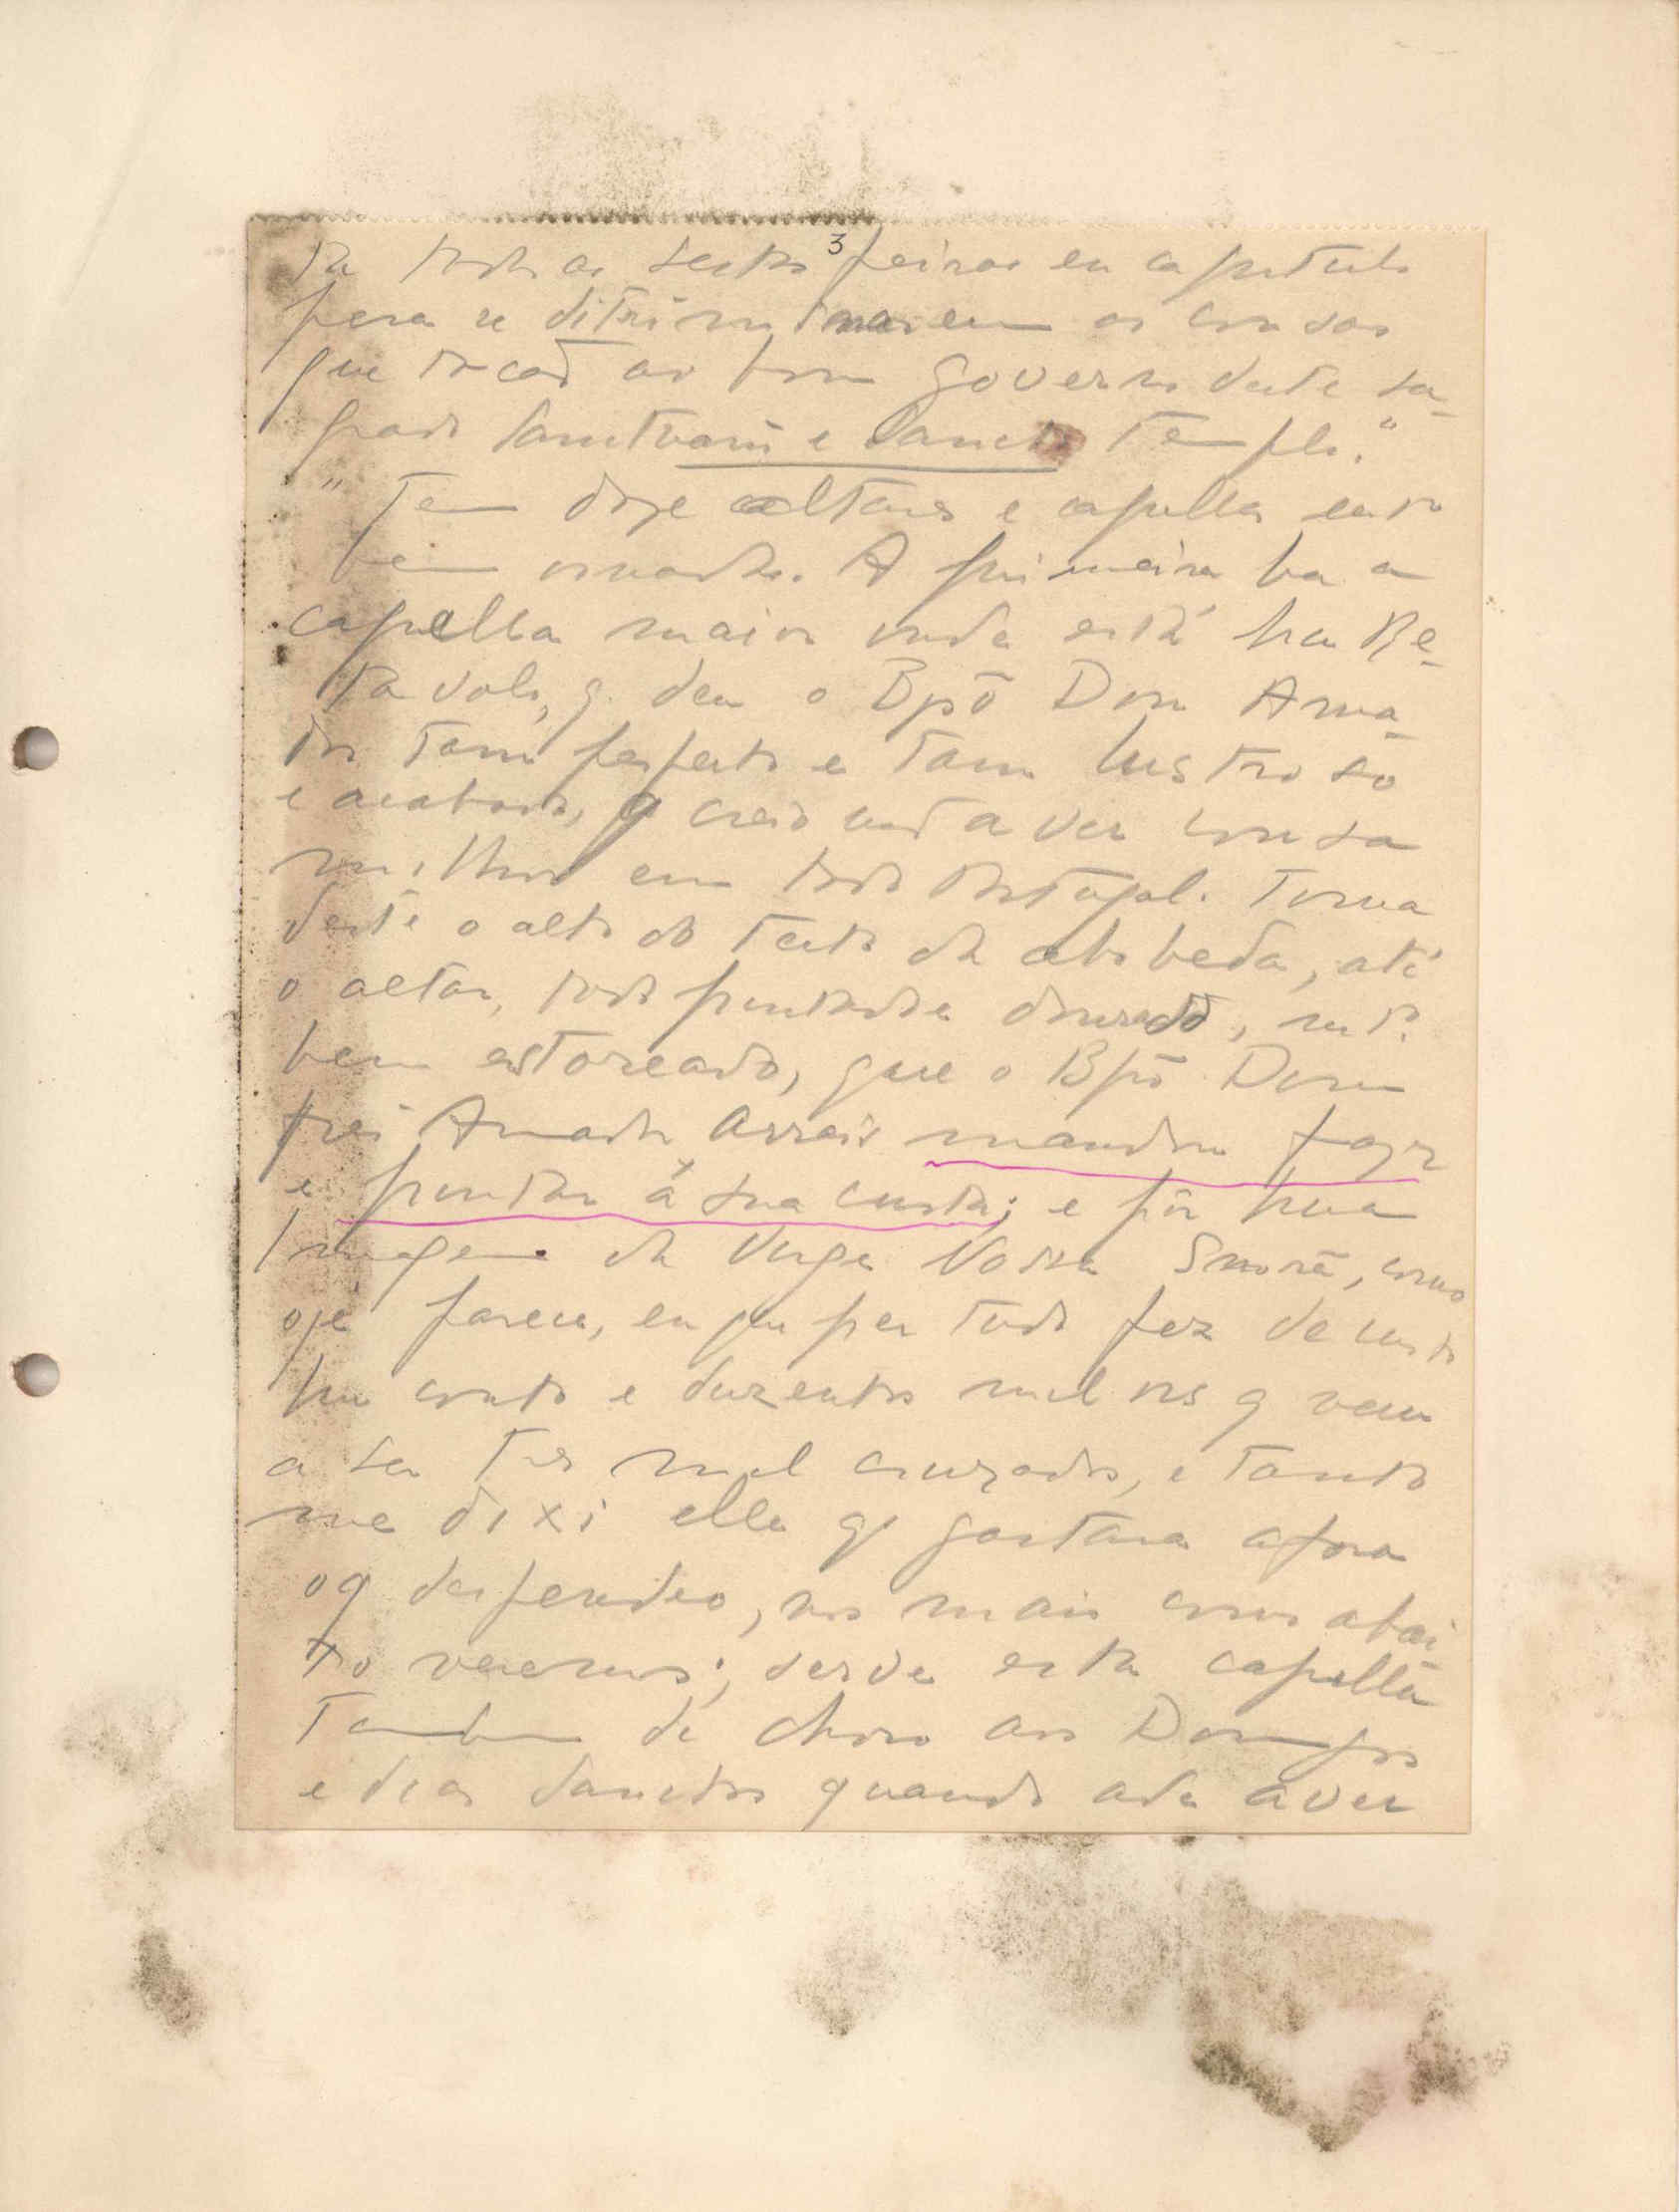 3
ta todas as sextas feiras en capitulo
pera se ditriminarem as cousas
que tocaõ ao bom governo deste sa-
grado Sanctuario e Sancto Templo."
"Tem doze altares e capellas
bem ornadas. A primeira ha a
capella maior onde está hu Re-
tavolo, q deu o Bpō Dom Ama-
dor tam perfeito e tam lustroso
e acabado, q creio naõ aver cousa
milhor em todo Portugal. Toma
deste o alto do teito da abobeda, até
o altar, todo pintado e dourado, mto
bem estoreado, que o Bpō Dom
frei Amador Arrais mandou fazer
e pintar á sua custa; e pôr hua
Imagem da Virge Nossa Snorā, como
oje parece, en que per tudo fez de custo
hu conto e duzentos mil rs q vem
a ser tres mil cruzados, e tanto
me dixi elle q gastara afora
oq despendeo, nos mais como abai
xo veremos; serve esta capella
Tambem de choro aos Domingos
e dias Sanctos quando ade aver